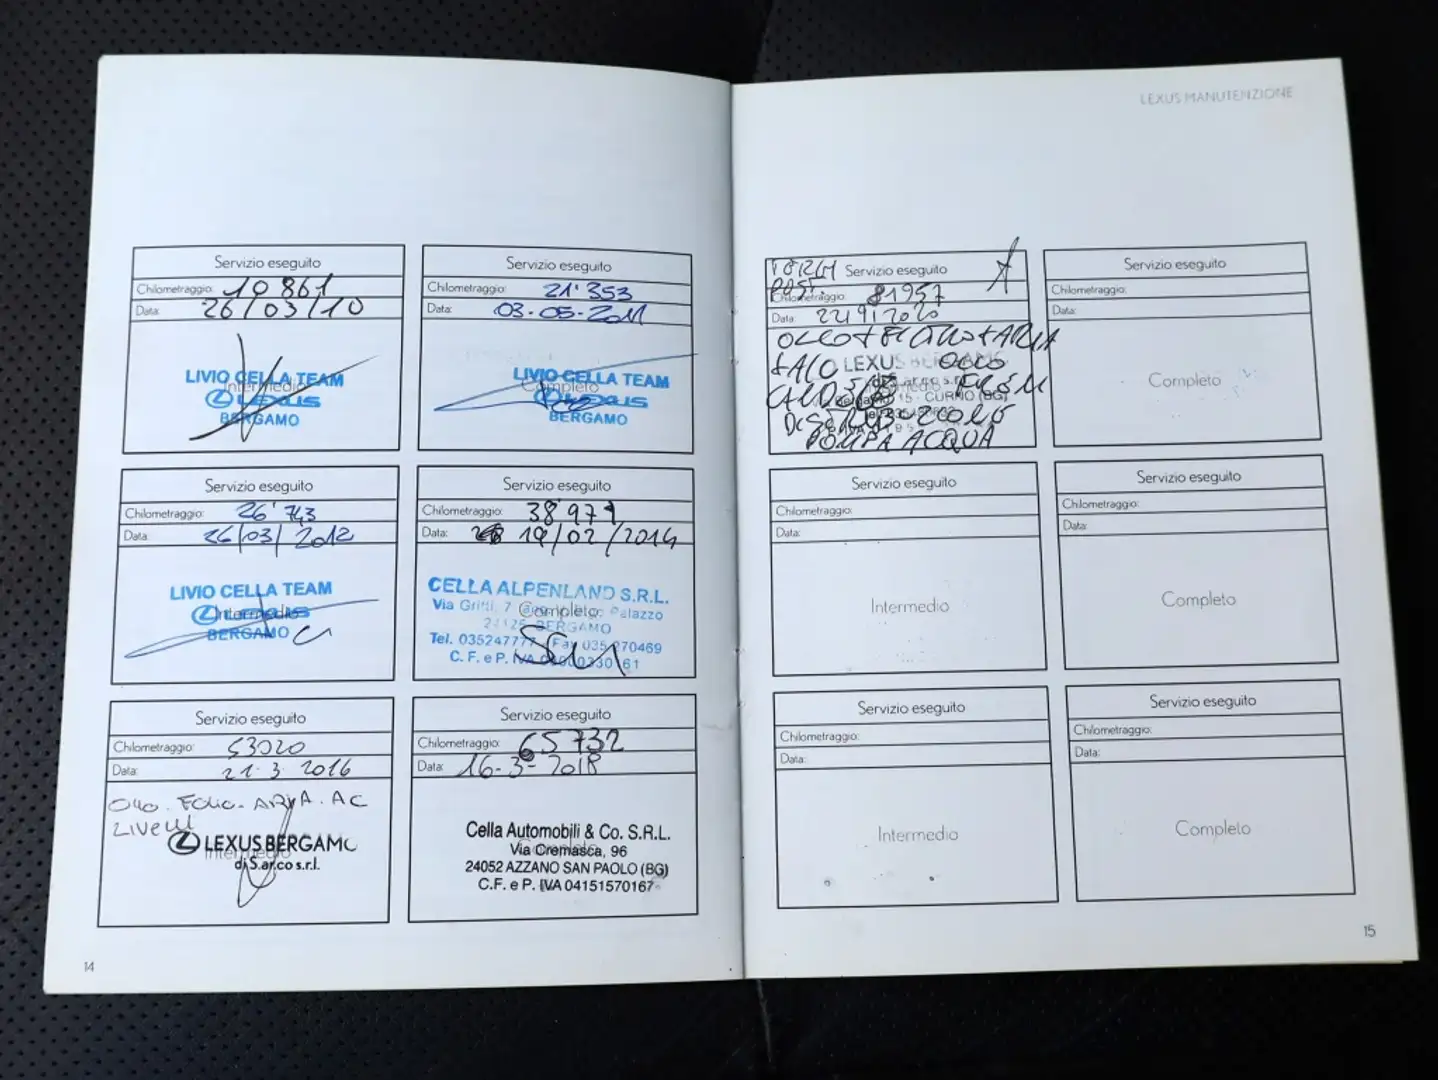 Servizio eseguito
Chilometraggio: 10 861
Data: 26/03/10
LIVIO CELLA TEAM
Intermedio
LEXUS
BERGAMO
Servizio eseguito
Chilometraggio: 21'353
Data: 03-05-2011
LIVIO CELLA TEAM
Completo
LEXUS
BERGAMO
Servizio eseguito
Chilometraggio: 26'743
Data: 26/03/2012
LIVIO CELLA TEAM
Intermedio
LEXUS
BERGAMO
Servizio eseguito
Chilometraggio: 38'971
Data: 19/02/2014
CELLA ALPENLAND S.R.L.
Via Gritti, 7 Completo Palazzo
24125 BERGAMO
Tel. 035247777 Fax 035 270469
C. F. e P. IVA
Servizio eseguito
Chilometraggio: 53020
Data: 21.3.2016
OLIO. ARIA. AC
LIVELLI
LEXUS BERGAMO
Intermedio
di S.ar.co s.r.l.
Servizio eseguito
Chilometraggio: 65732
Data: 16-3-2018
Cella Automobili & Co. S.R.L.
Completo
Via Cremasca, 96
24052 AZZANO SAN PAOLO (BG)
C.F. e P. IVA 04151570167
14
LEXUS MANUTENZIONE
Servizio eseguito
POST.
Chilometraggio: 81957
Data: 22/9/2020
OLIO + FILTRO + ARIA
LEXUS BERGAMO
OLIO
CURNO (BG)
POMPA ACQUA
Servizio eseguito
Chilometraggio:
Data:
Completo
Servizio eseguito
Chilometraggio:
Data:
Intermedio
Servizio eseguito
Chilometraggio:
Data:
Completo
Servizio eseguito
Chilometraggio:
Data:
Intermedio
Servizio eseguito
Chilometraggio:
Data:
Completo
15